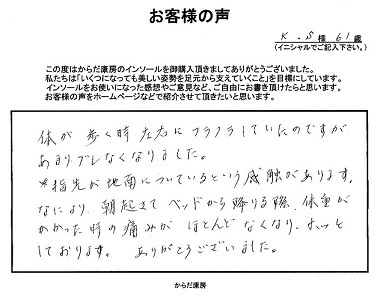 お客様の声
K.S様 61歳
(イニシャルでご記入下さい。)
この度はからだ康房のインソールを御購入頂きましてありがとうございました。
私たちは「いくつになっても美しい姿勢を足元から支えていくこと」を目標にしています。
インソールをお使いになった感想やご意見など、ご自由にお書き頂けたらと思います。
お客様の声をホームページなどで紹介させて頂きたいと思います。
体が歩く時左右にフラフラしていたのですが
あまりブレなくなりました。
*指先が地面についているという感触があります。
なにより、朝起きてベッドから降りる際、体重が
かかった時の痛みがほとんどなくなり、ホッと
しております。ありがとうございました。
からだ康房